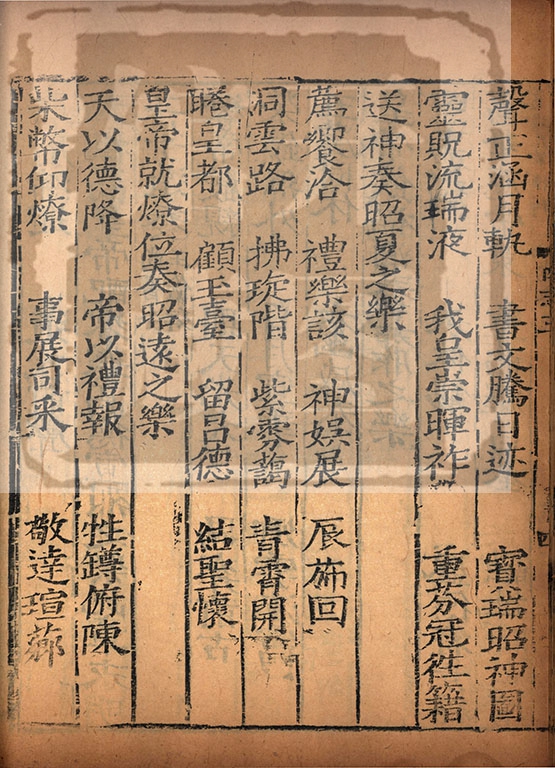 聲正涵月軌　書文騰日迹　寶瑞昭神圖
靈貺流瑞液　我皇崇暉祚　重芬冠往籍
送神奏昭夏之樂
薦饗洽　禮樂該　神娛展　辰旆回
洞雲路　拂琁階　紫雰藹　青霄開
睠皇都　顧玉臺　留昌德　結聖懷
皇帝就燎位奏昭遠之樂
天以德降　帝以禮報　牲罇俯陳
柴幣仰燎　事展司采　敬達瑄薌